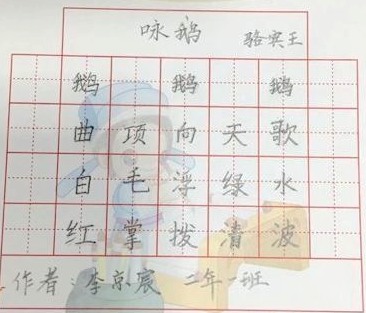 咏鹅 骆宾王
鹅 鹅 鹅
曲项向天歌
白毛浮绿水
红掌拨清波
作者：李京宸 二年一班